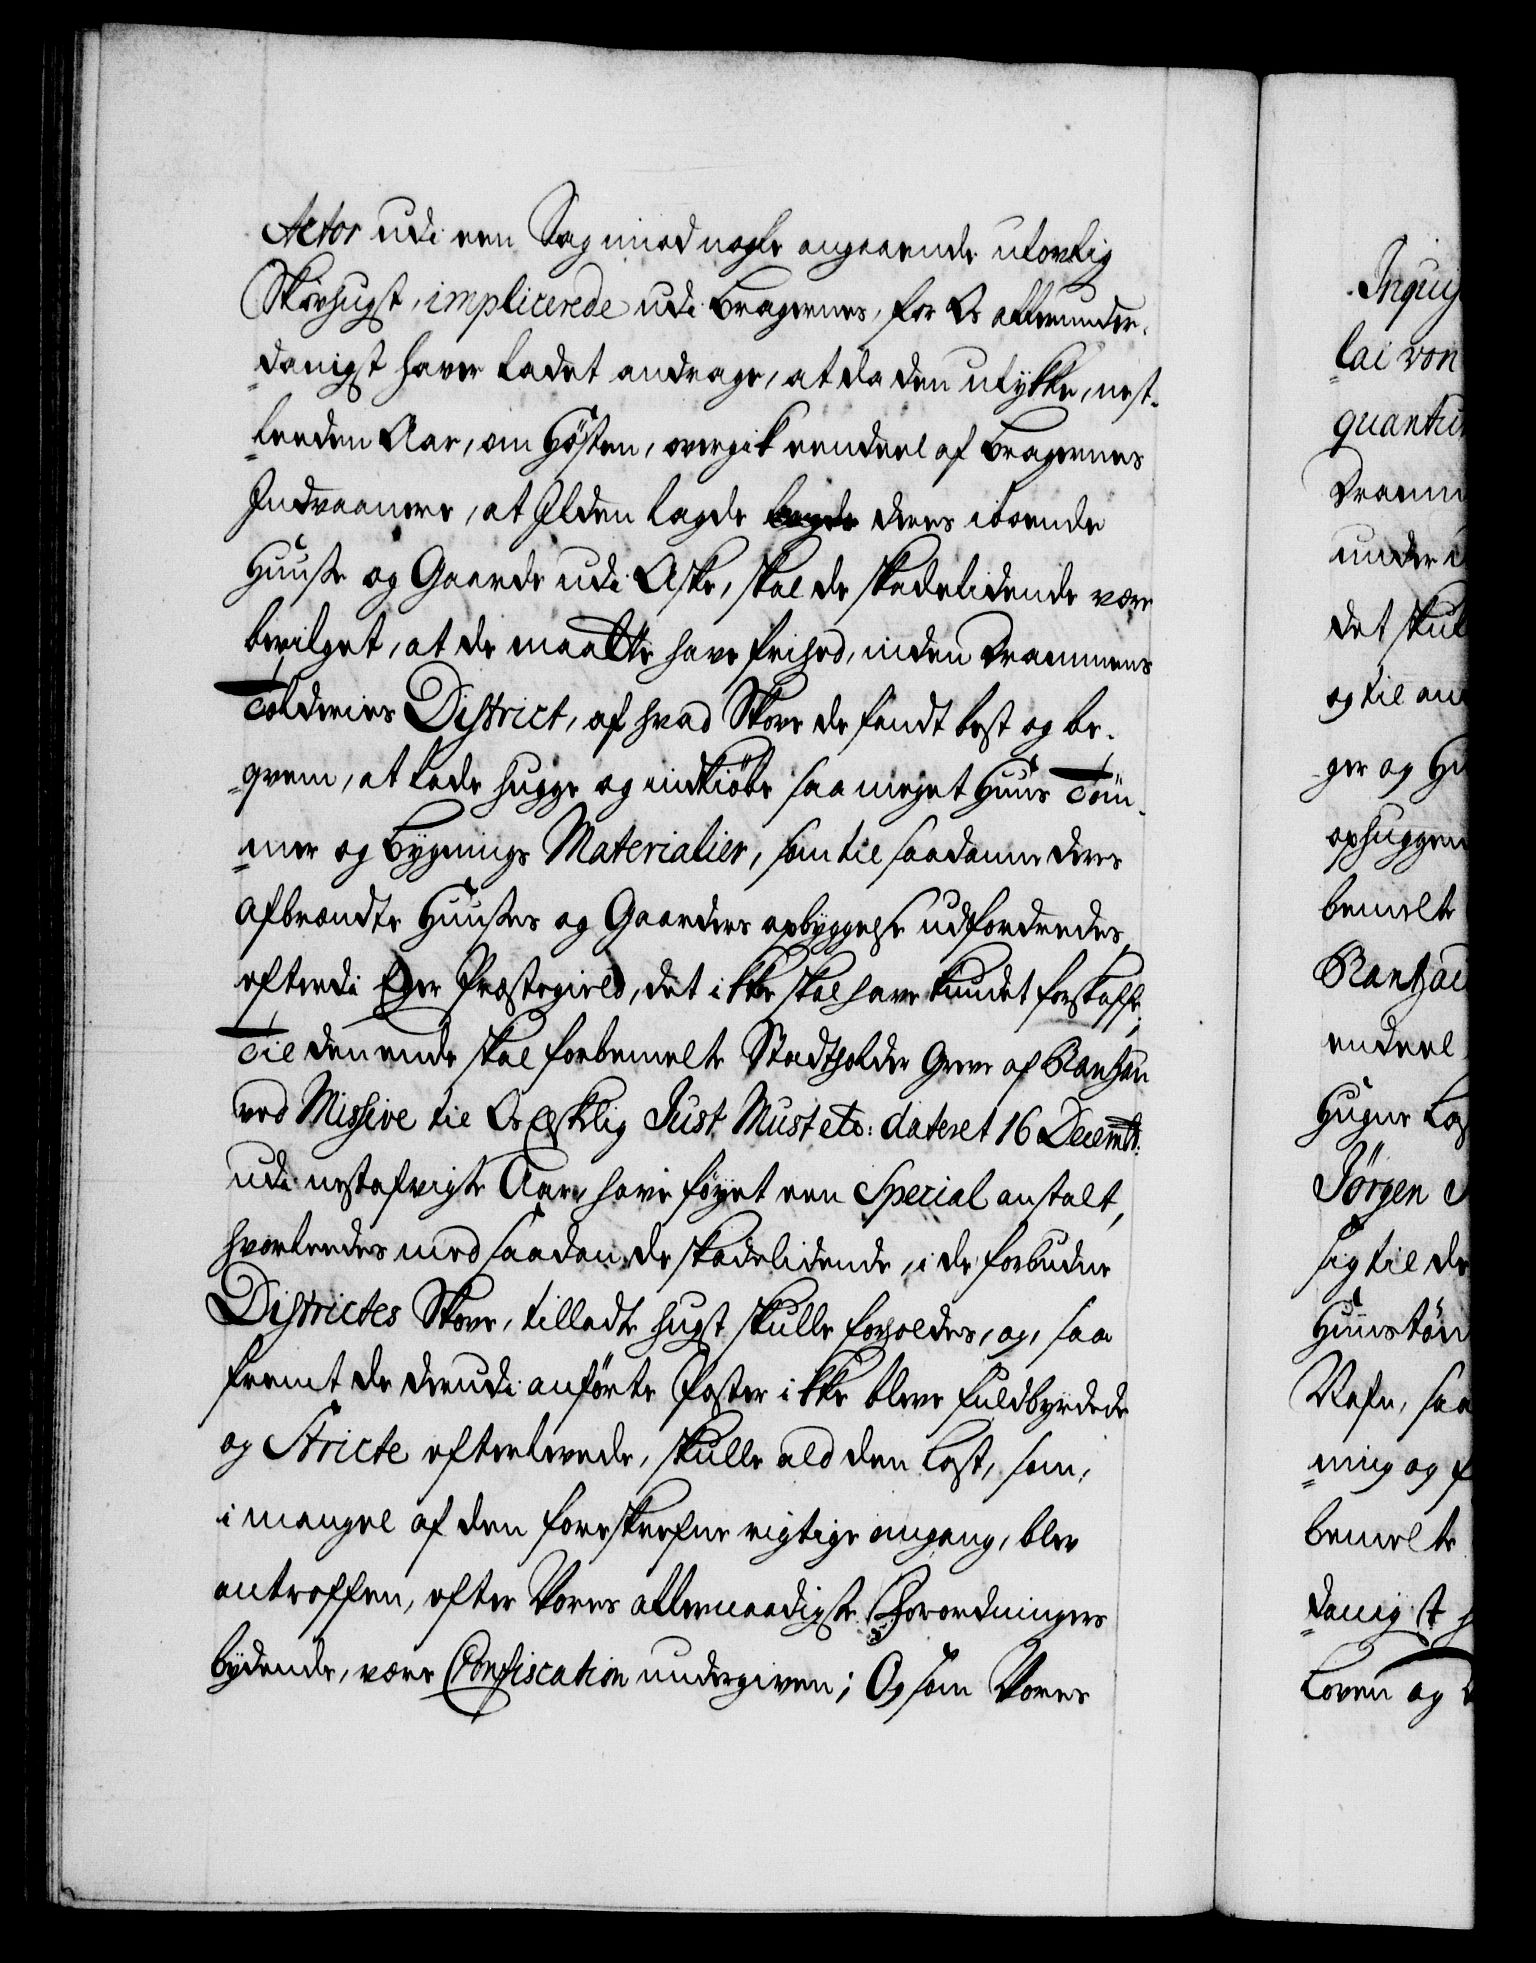 Actor udi een Sag imod nogle angaaende ulovlig
Skovhugst, implicerede udi Bragernes, for Os allerunder-
danigst haver ladet andrage, at da den ulykke, nest-
leeden Aar, om Høsten, overgik eendeel af Bragernes
Indvaanere, at Ilden lagde deres iboende
Huuse og Gaarde udi Aske, skal de skadelidende være
bevilget, at de maatte have frihed, inden Drammens
Tolderies District, af hvad Skove de fandt best og be-
qvem, at lade hugge og indkiøbe saa meget Huus Tøm-
mer og Bygnings Materialier, som til saadanne deres
afbrændte Huuses og Gaarders opbyggelse udfordredes,
efterdi Eger Præstegield, det ikke skal have kundet forskaffe;
Til den ende skal forbemelte Stadtholder Greve af Ranzau
ved Missive til Os Elskelig Just Must etc: dateret 16 Decembr:
udi nestafvigte Aar, have føyet een Special anstalt,
hvorledes med saadan de skadelidende, i de forbudne
Districtes Skove, tilladte hugst skulle forholdes, og, saa
fremt de derudi anførte Poster ikke bleve fuldbyrdede
og Stricte efterlevede, skulle ald den Last, som,
i mangel af den foreskrefne rigtige omgang, blev
antroffen, efter Vores allernaadigste Forordningers
bydende, være Confiscation undergiven; Og som Vores
Inquis
lai von
quantu
Dramm
under
det skul
og til an
ger og Hu
ophuggen
bemelte
Rantzau
endeel
Hugne Las
Jørgen
sig til de
Huustøm
Vefn, saa
ning og f
bemelte
danigst h
Loven og